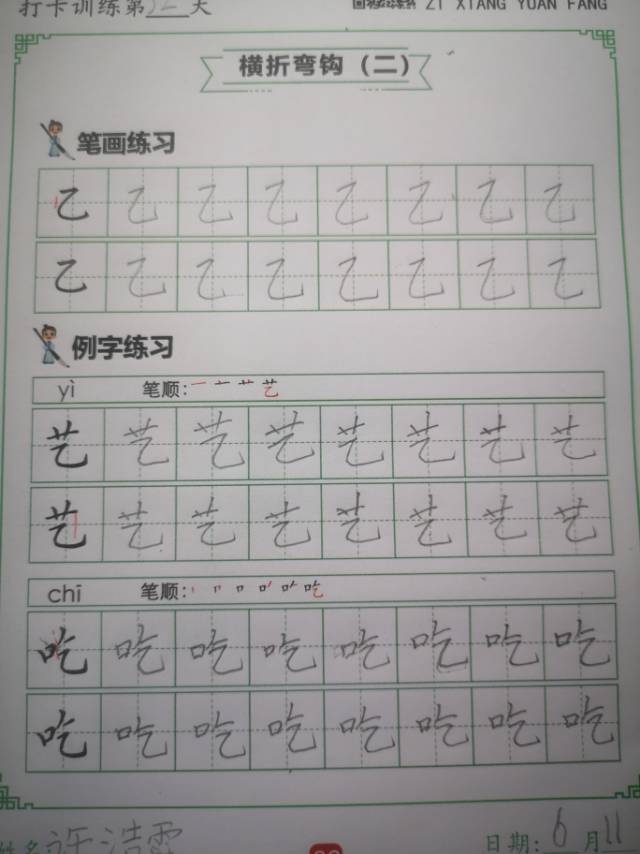 打卡训练第32天
ZI XIANG YUAN FANG
横折弯钩（二）
笔画练习
乙 乙 乙 乙 乙 乙 乙 乙
乙 乙 乙 乙 乙 乙 乙 乙
例字练习
yì 笔顺: 一 十 艹 艺
艺 艺 艺 艺 艺 艺 艺 艺
艺 艺 艺 艺 艺 艺 艺 艺
chī 笔顺: 丨 𠃍 口 吃
吃 吃 吃 吃 吃 吃 吃 吃
吃 吃 吃 吃 吃 吃 吃 吃
姓名 许浩霖 日期: 6月11